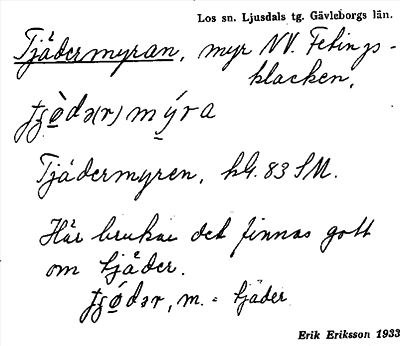 Los sn. Ljusdals tg. Gävleborgs län.
Tjädermyran, myr NV. Fetings-
klacken.
tʒø̀də(r)mýra
Tjädermyren, hG. 83 SM.
Här brukar det finnas gott
om tjäder.
tʒǿdər, m. = tjäder
Erik Eriksson 1933